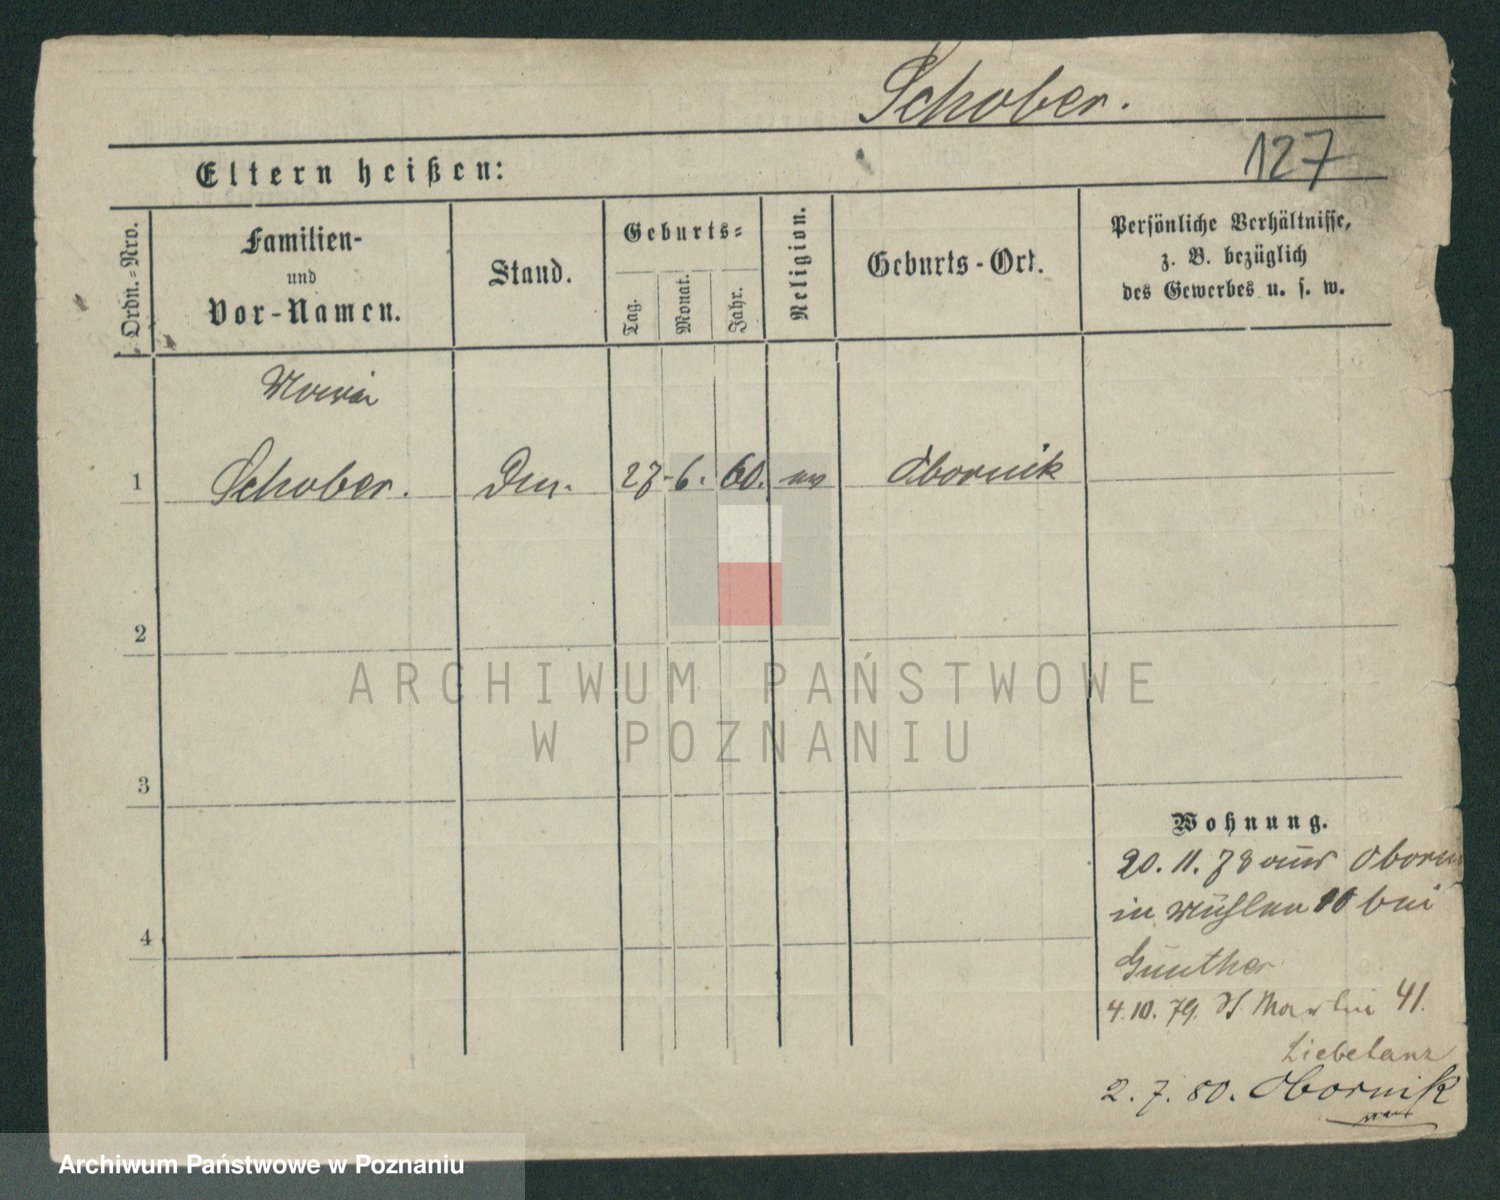 Schober.
127
Eltern heißen:
Ordn.-Nro.
Familien-
und
Vor-Namen.
Stand.
Geburts-
Tag.
Monat.
Jahr.
Religion.
Geburts-Ort.
Persönliche Verhältnisse,
z. B. bezüglich
des Gewerbes u. s. w.
1
Schober.
27. 6. 60.
Obornik
2
3
4
Wohnung.
20. 11. 78 aus Obornik
in Mühlen 10 bei
Günther
4. 10. 79. St Martin 41.
2. 7. 80. Obornik
ARCHIWUM PAŃSTWOWE
W POZNANIU
Archiwum Państwowe w Poznaniu